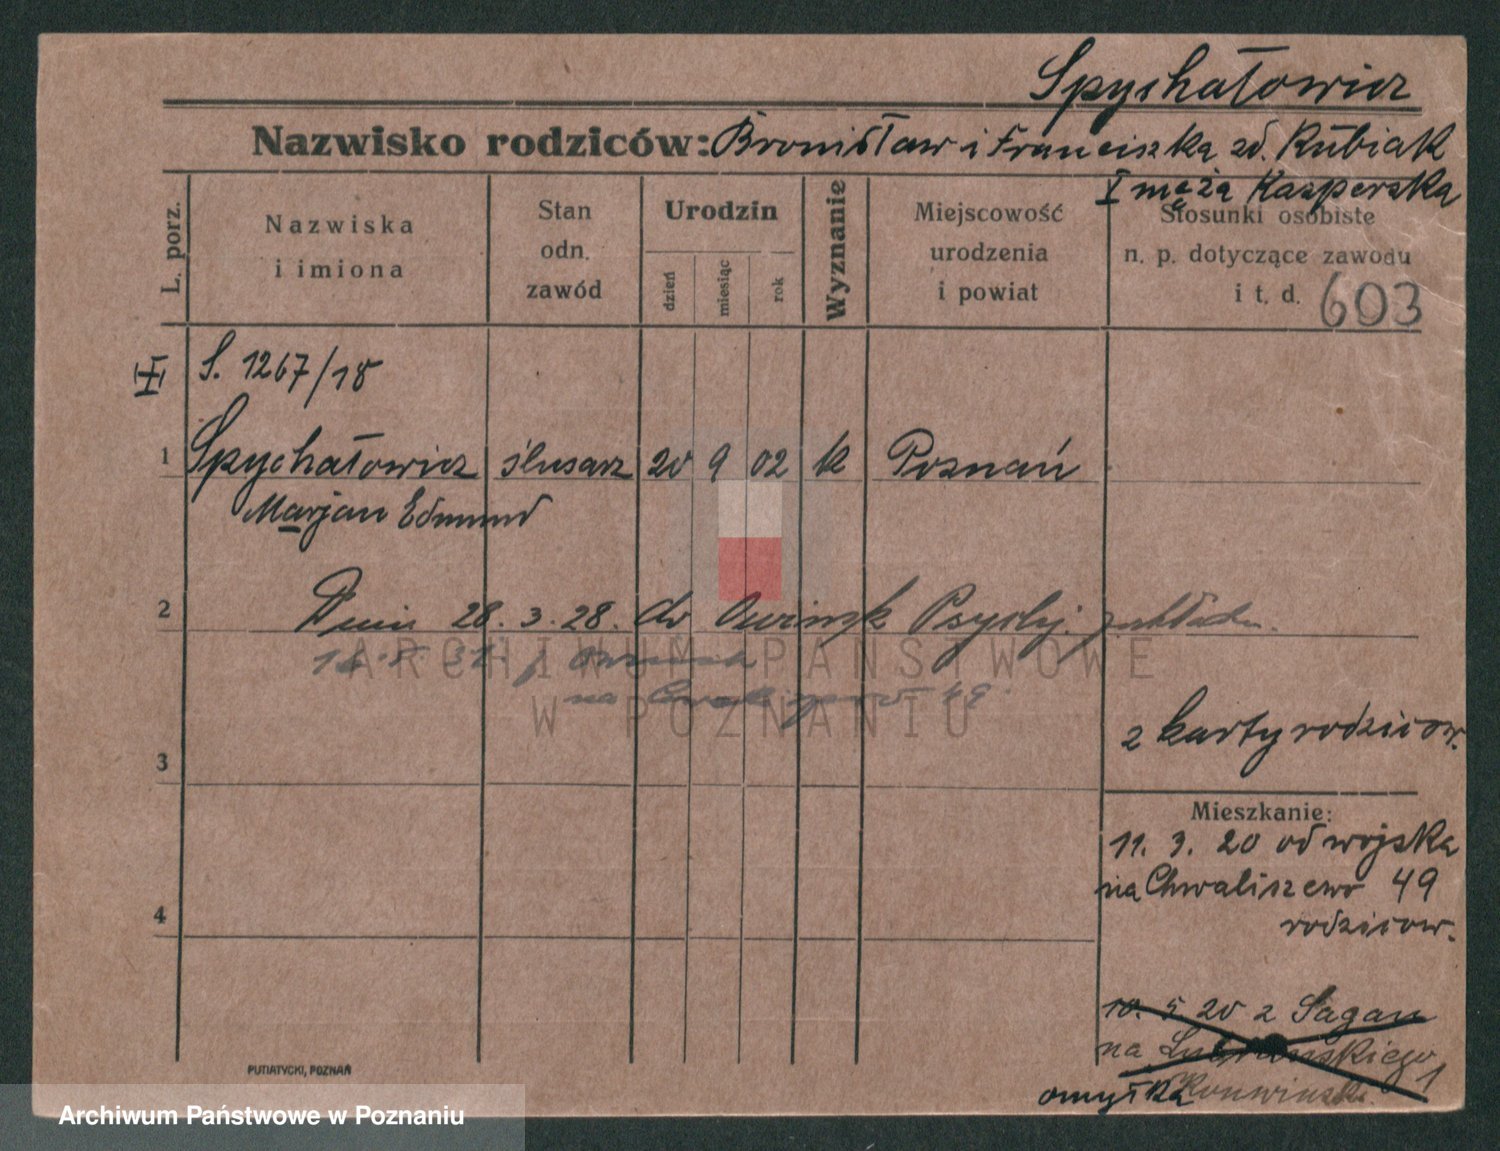 Spychałowicz
Nazwisko rodziców: Bronisław i Franciszka zd. Kubiak
I męża Kasperska
L. porz.
Nazwiska i imiona
Stan odn. zawód
Urodzin
dzień
miesiąc
rok
Wyznanie
Miejscowość urodzenia i powiat
Stosunki osobiste
n. p. dotyczące zawodu
i t. d. 603
S. 1267/18
1 Spychałowicz ślusarz 20 9 02 k Poznań
Marjan Edmund
2 Dnia 28. 3. 28. do Owińsk Psychj. zakładu.
na 49.
ARCHIWUM PAŃSTWOWE
W POZNANIU
z karty rodziców.
3
Mieszkanie:
11. 3. 20 od wojska
na Chwaliszewo 49
rodziców.
4
10. 5 20 z Sagan
na 1
omyłka
PUTIATYCKI, POZNAŃ
Archiwum Państwowe w Poznaniu